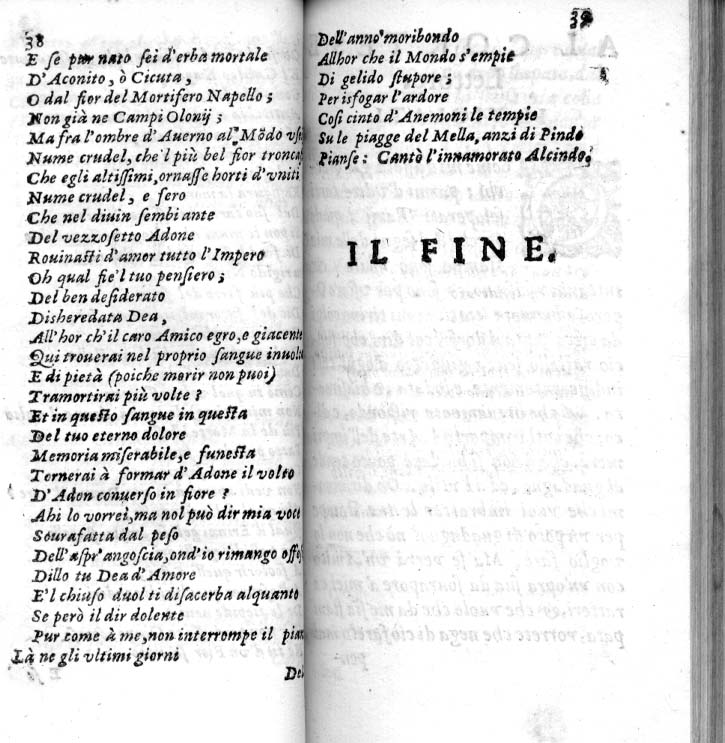 38
E se pur nato sei d'erba mortale
D'Aconito, ò Cicuta,
O dal fior del Mortifero Napello;
Non già ne Campi Olonij;
Ma fra l'ombre d'Auerno al Mōdo
Nume crudel, che'l più bel fior
Che egli altissimi, ornasse horti d'vniti
Nume crudel, e fero
Che nel diuin sembiante
Del vezzosetto Adone
Rouinasti d'amor tutto l'Impero
Oh qual fie'l tuo pensiero;
Del ben desiderato
Disheredata Dea,
All'hor ch'il caro Amico egro, e giacente
Qui trouerai nel proprio sangue
E di pietà (poiche morir non puoi)
Tramortirai più volte?
Et in questo sangue in questa
Del tuo eterno dolore
Memoria miserabile, e funesta
Ternerai à formar d'Adone il volto
D'Adon conuerso in fiore?
Ahi lo vorrei, ma nol può dir mia voce
Sourafatta dal peso
Dell'aspr'angoscia, ond'io rimango
Dillo tu Dea d'Amore
E'l chiuso duol ti disacerba alquanto
Se però il dir dolente
Pur come à me, non interrompe il
Là ne gli vltimi giorni
Del
39
Dell'anno moribondo
Allhor che il Mondo s'empie
Di gelido stupore;
Per isfogar l'ardore
Cosi cinto d'Anemoni le tempie
Su le piagge del Mella, anzi di Pindo
Pianse: Cantò l'innamorato Alcindo.
IL FINE.